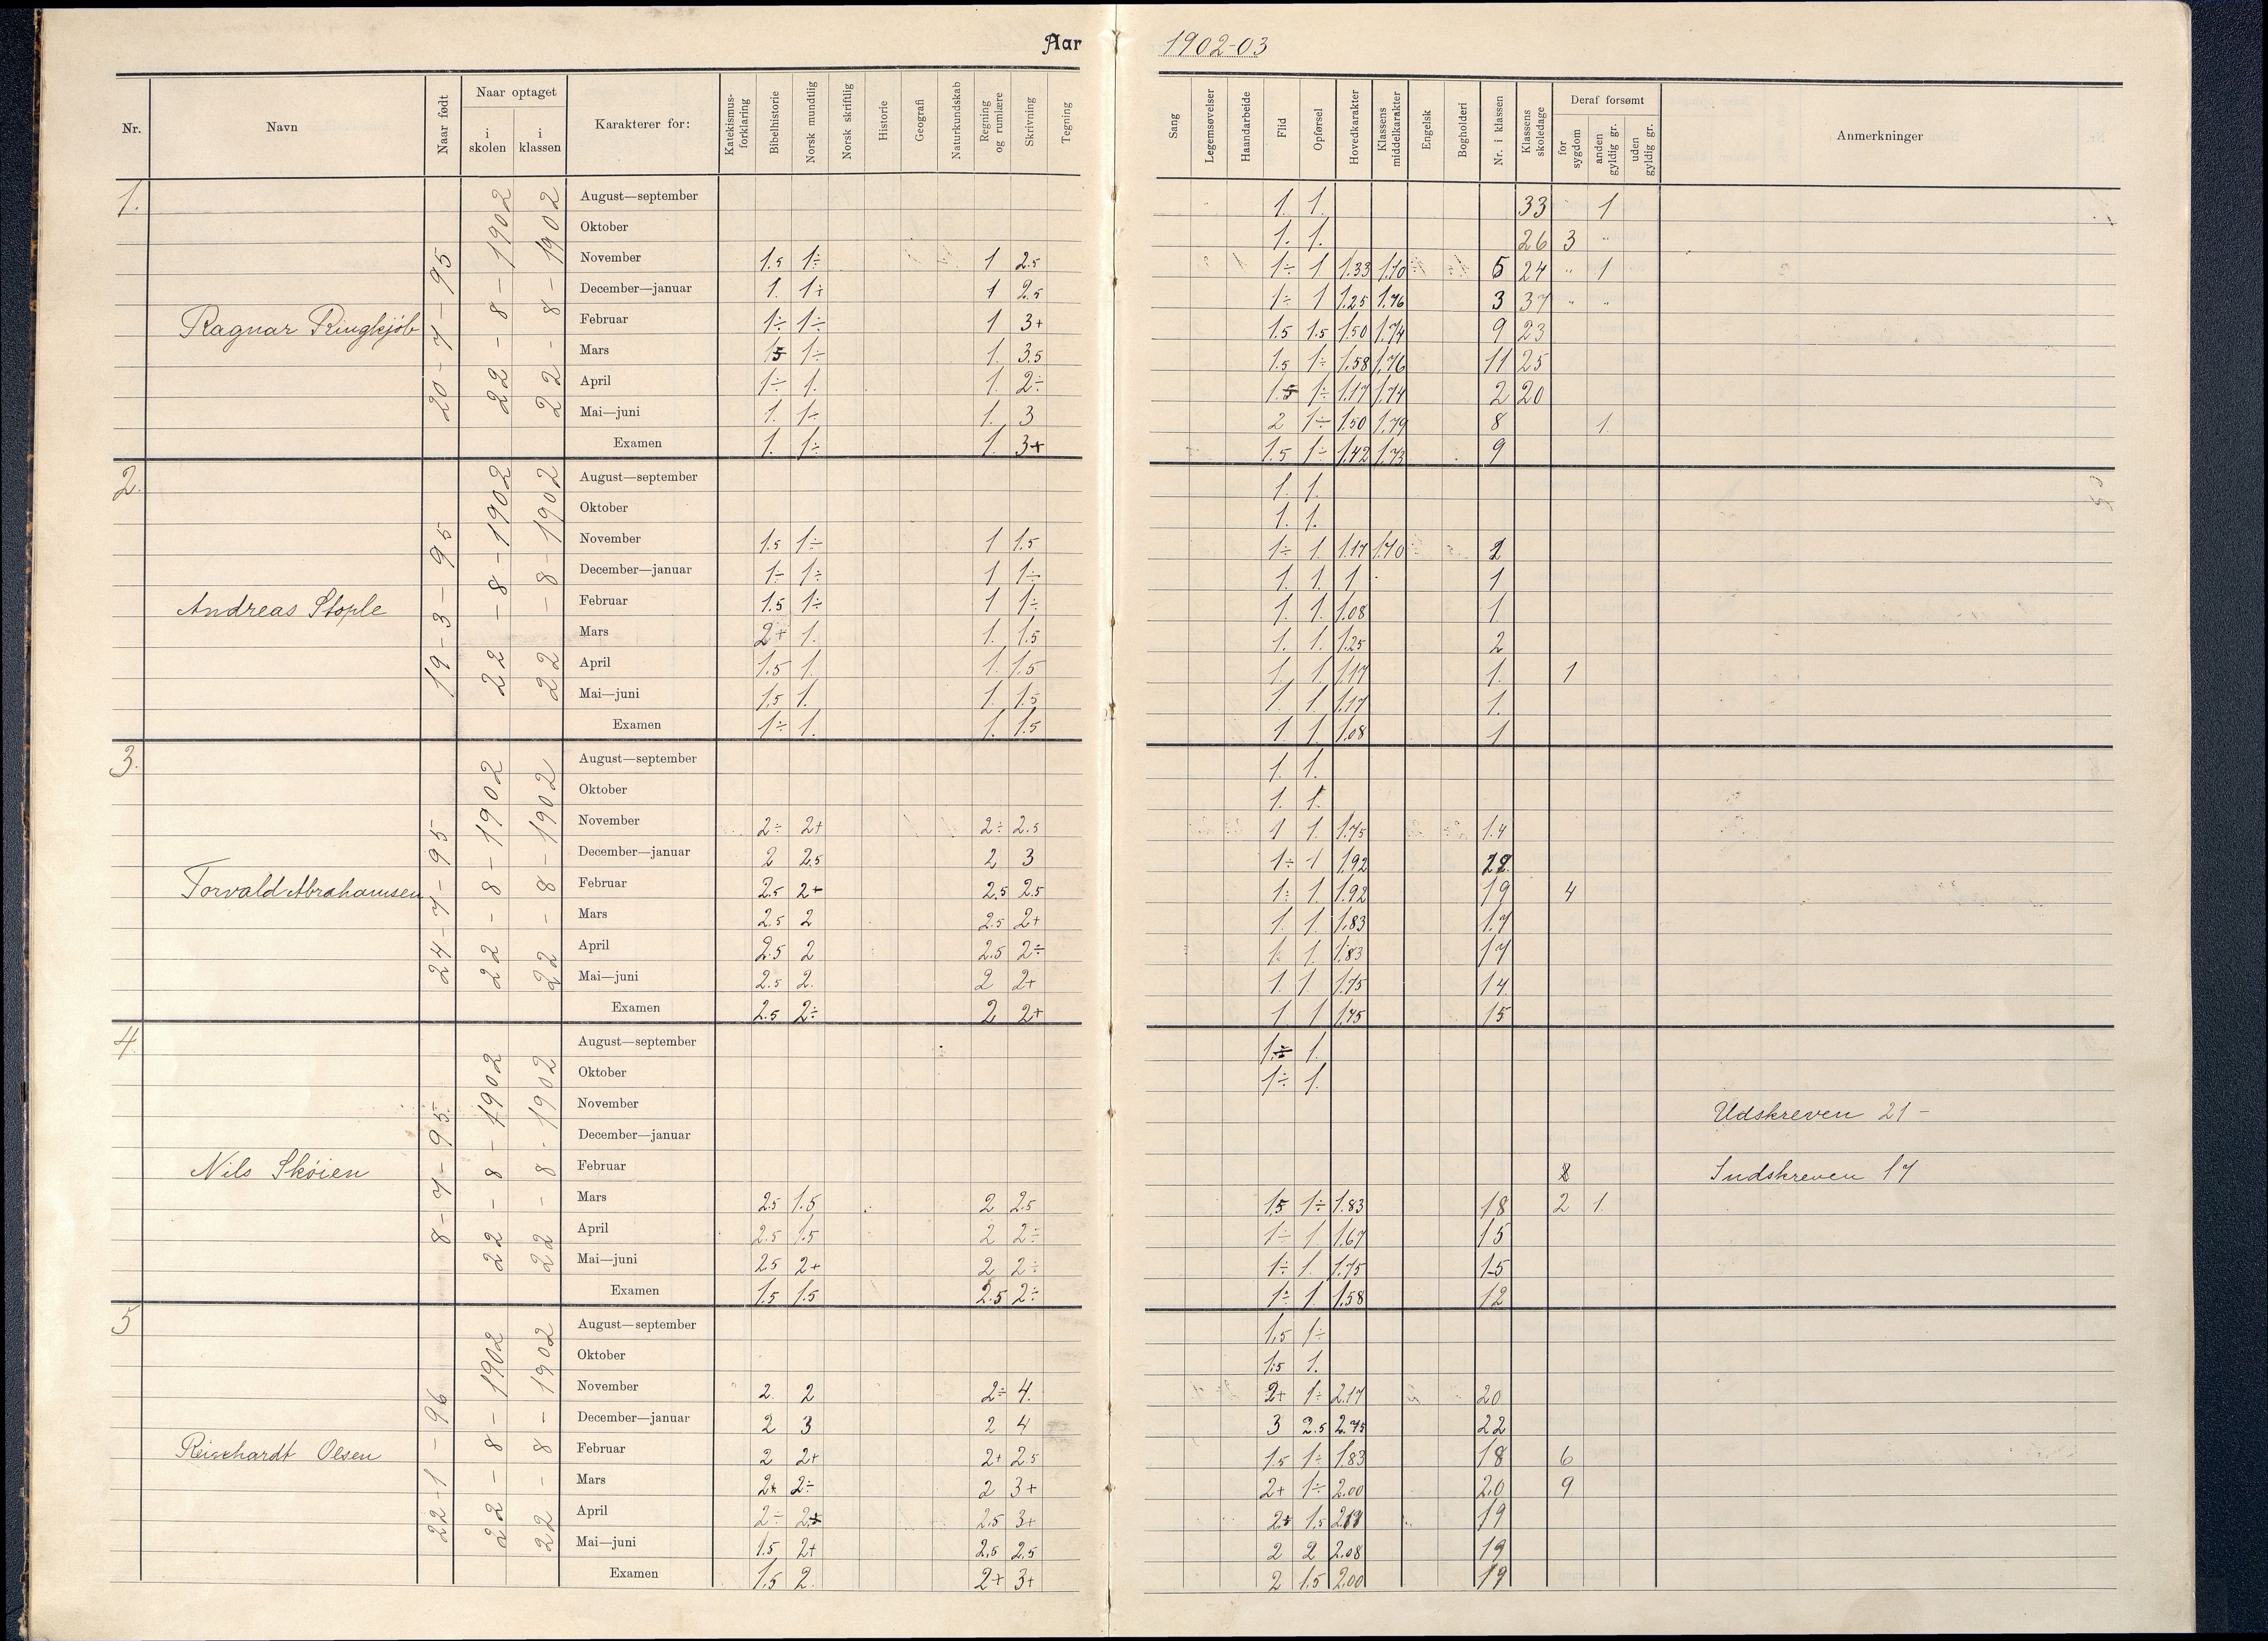 Aar 1902-03
Nr. Navn Naar født Naar optaget i skolen i klassen Karakterer for: Katekismus-forklaring Bibelhistorie Norsk mundtlig Norsk skriftlig Historie Geografi Naturkundskab Regning og rumlære Skrivning Tegning Sang Legemsøvelser Haandarbeide Flid Opførsel Hovedkarakter Klassens middelkarakter Engelsk Bogholderi Nr. i klassen Klassens skoledage Deraf forsømt for sygdom anden gyldig gr. uden gyldig gr. Anmerkninger
1. Ragnar Ringkjøb 20-7-95 22-8-1902 22-8-1902
August—september 1. 1. 33 " 1
Oktober 1. 1. 26 3 "
November 1.5 1÷ 1 2.5 1÷ 1 1.33 1.70 5 24 " 1
December—januar 1. 1÷ 1 2.5 1÷ 1 1.25 1.76 3 37 " "
Februar 1÷ 1÷ 1 3+ 1.5 1.5 1.50 1.74 9 23
Mars 1.5 1÷ 1. 3.5 1.5 1÷ 1.58 1.76 11 25
April 1÷ 1. 1. 2÷ 1.5 1÷ 1.17 1.74 2 20
Mai—juni 1. 1÷ 1. 3 2 1÷ 1.50 1.79 8 1.
Examen 1. 1÷ 1. 3+ 1.5 1÷ 1.42 1.73 9
2. Andreas Stople 19-3-95 22-8-1902 22-8-1902
August—september 1. 1.
Oktober 1. 1.
November 1.5 1÷ 1 1.5 1÷ 1. 1.17 1.70 2
December—januar 1÷ 1÷ 1 1÷ 1. 1. 1 1
Februar 1.5 1÷ 1 1÷ 1. 1. 1.08 1.
Mars 2+ 1. 1. 1.5 1. 1. 1.25 2
April 1.5 1. 1. 1.5 1. 1. 1.17 1. 1
Mai—juni 1.5 1. 1. 1.5 1. 1 1.17 1.
Examen 1÷ 1. 1. 1.5 1. 1 1.08 1
3. Torvald Abrahamsen 24-7-95 22-8-1902 22-8-1902
August—september 1. 1.
Oktober 1. 1.
November 2÷ 2+ 2÷ 2.5 1 1. 1.75 14
December—januar 2 2.5 2 3 1÷ 1 1.92
Februar 2.5 2+ 2.5 2.5 1÷ 1. 1.92 19 4
Mars 2.5 2 2.5 2+ 1. 1. 1.83 17
April 2.5 2 2.5 2÷ 1. 1. 1.83 17
Mai—juni 2.5 2. 2 2+ 1. 1 1.75 14.
Examen 2.5 2÷ 2 2+ 1. 1 1.75 15
4. Nils Skøien 8-7-95. 22-8-1902 22-8-1902
August—september 1÷ 1.
Oktober 1÷ 1.
November Udskreven 21 -
December—januar
Februar Indskreven 17
Mars 2.5 1.5 2 2.5 1.5 1÷ 1.83 18 2 1.
April 2.5 1.5 2 2÷ 1÷ 1 1.67 15
Mai—juni 2.5 2+ 2 2÷ 1÷ 1. 1.75 15
Examen 1.5 1.5 2.5 2÷ 1÷ 1. 1.58 12
5 Reinhardt Olsen 22-1-96 22-8-1902 22-8-1902
August—september 1.5 1÷
Oktober 1.5 1.
November 2. 2 2÷ 4. 2+ 1÷ 2.17 20
December—januar 2 3 2 4 3 2.5 2.75 22
Februar 2 2+ 2+ 2.5 1.5 1÷ 1.83 18 6
Mars 2+ 2÷ 2 3+ 2+ 1÷ 2.00 20 9
April 2÷ 2+ 2.5 3+ 2+ 1.5 19
Mai—juni 1.5 2+ 2.5 2.5 2 2 2.08 19
Examen 1.5 2. 2+ 3+ 2 1.5 2.00 19